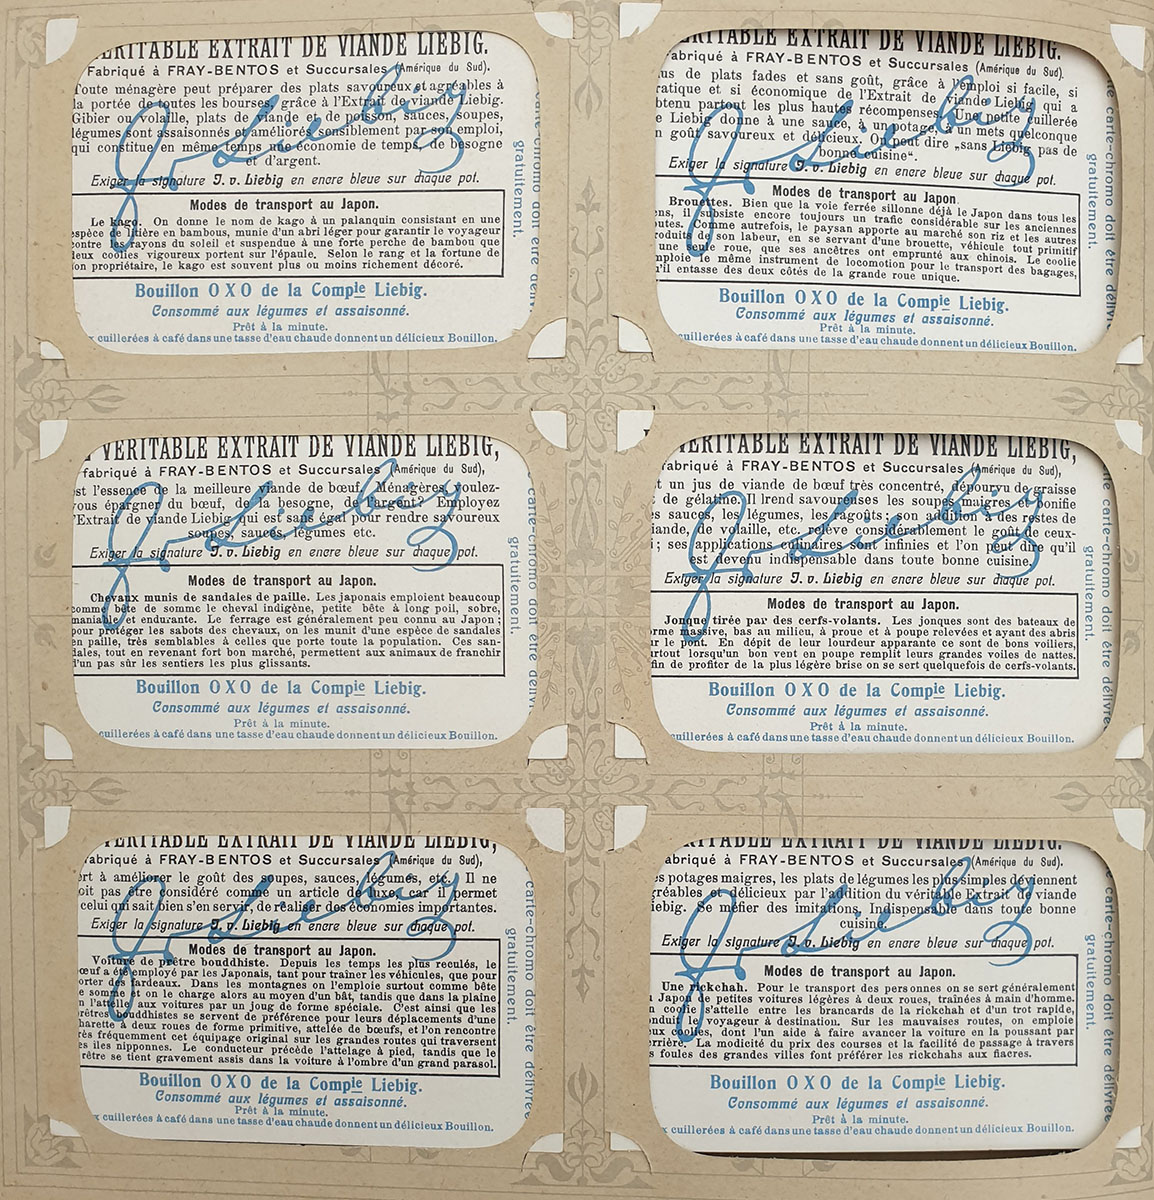 VÉRITABLE EXTRAIT DE VIANDE LIEBIG.
Fabriqué à FRAY-BENTOS et Succursales (Amérique du Sud).
Toute ménagère peut préparer des plats savoureux et agréables à
la portée de toutes les bourses, grâce à l'Extrait de viande Liebig.
Gibier ou volaille, plats de viande et de poisson, sauces, soupes,
légumes sont assaisonnés et améliorés sensiblement par son emploi,
qui constitue en même temps une économie de temps, de besogne
et d'argent.
Exiger la signature J. v. Liebig en encre bleue sur chaque pot.
J. v. Liebig
Modes de transport au Japon.
Le kago. On donne le nom de kago à un palanquin consistant en une
espèce de litière en bambous, munie d'un abri léger pour garantir le voyageur
contre les rayons du soleil et suspendue à une forte perche de bambou que
deux coolies vigoureux portent sur l'épaule. Selon le rang et la fortune de
son propriétaire, le kago est souvent plus ou moins richement décoré.
Bouillon OXO de la Compie Liebig.
Consommé aux légumes et assaisonné.
Prêt à la minute.
cuillerées à café dans une tasse d'eau chaude donnent un délicieux Bouillon.
carte-chromo doit être
gratuitement.
VÉRITABLE EXTRAIT DE VIANDE LIEBIG.
Fabriqué à FRAY-BENTOS et Succursales (Amérique du Sud)
us de plats fades et sans goût, grâce à l'emploi si facile, si
ratique et si économique de l'Extrait de viande Liebig qui a
btenu partout les plus hautes récompenses. Une petite cuillerée
e Liebig donne à une sauce, à un potage, à un mets quelconque
n goût savoureux et délicieux. On peut dire „sans Liebig pas de
bonne cuisine“.
Exiger la signature J. v. Liebig en encre bleue sur chaque pot.
J. v. Liebig
Modes de transport au Japon
Brouettes. Bien que la voie ferrée sillonne déjà le Japon dans tous les
ens, il subsiste encore toujours un trafic considérable sur les anciennes
outes. Comme autrefois, le paysan apporte au marché son riz et les autres
roduits de son labeur, en se servant d'une brouette, véhicule tout primitif
une seule roue, que ses ancêtres ont emprunté aux chinois. Le coolie
mploie le même instrument de locomotion pour le transport des bagages,
u'il entasse des deux côtés de la grande roue unique.
Bouillon OXO de la Compie Liebig.
Consommé aux légumes et assaisonné.
Prêt à la minute.
cuillerées à café dans une tasse d'eau chaude donnent un délicieux Bouillon.
carte-chromo doit être délivrée
gratuitement.
VÉRITABLE EXTRAIT DE VIANDE LIEBIG,
fabriqué à FRAY-BENTOS et Succursales (Amérique du Sud),
st l'essence de la meilleure viande de bœuf. Ménagères, voulez-
vous épargner du bœuf, de la besogne, de l'argent? Employez
l'Extrait de viande Liebig qui est sans égal pour rendre savoureux
soupes, sauces, légumes etc.
Exiger la signature J. v. Liebig en encre bleue sur chaque pot.
J. v. Liebig
Modes de transport au Japon.
Chevaux munis de sandales de paille. Les japonais emploient beaucoup
comme bête de somme le cheval indigène, petite bête à long poil, sobre,
maniable et endurante. Le ferrage est généralement peu connu au Japon;
pour protéger les sabots des chevaux, on les munit d'une espèce de sandales
en paille, très semblables à celles que porte toute la population. Ces san-
dales, tout en revenant fort bon marché, permettent aux animaux de franchir
d'un pas sûr les sentiers les plus glissants.
Bouillon OXO de la Compie Liebig.
Consommé aux légumes et assaisonné.
Prêt à la minute.
cuillerées à café dans une tasse d'eau chaude donnent un délicieux Bouillon.
carte-chromo doit être
gratuitement.
VÉRITABLE EXTRAIT DE VIANDE LIEBIG,
fabriqué à FRAY-BENTOS et Succursales (Amérique du Sud),
t un jus de viande de bœuf très concentré, dépourvu de graisse
de gélatine. Il rend savoureuses les soupes maigres et bonifie
s sauces, les légumes, les ragoûts; son addition à des restes de
iande, de volaille, etc. relève considérablement le goût de ceux-
i; ses applications culinaires sont infinies et l'on peut dire qu'il
est devenu indispensable dans toute bonne cuisine.
Exiger la signature J. v. Liebig en encre bleue sur chaque pot.
J. v. Liebig
Modes de transport au Japon.
Jonque tirée par des cerfs-volants. Les jonques sont des bateaux de
orme massive, bas au milieu, à proue et à poupe relevées et ayant des abris
ur le pont. En dépit de leur lourdeur apparante ce sont de bons voiliers,
urtout lorsqu'un bon vent en poupe remplit leurs grandes voiles de nattes.
fin de profiter de la plus légère brise on se sert quelquefois de cerfs-volants.
Bouillon OXO de la Compie Liebig.
Consommé aux légumes et assaisonné.
Prêt à la minute.
cuillerées à café dans une tasse d'eau chaude donnent un délicieux Bouillon.
carte-chromo doit être délivrée
gratuitement.
VÉRITABLE EXTRAIT DE VIANDE LIEBIG,
abriqué à FRAY-BENTOS et Succursales (Amérique du Sud),
ert à améliorer le goût des soupes, sauces, légumes, etc. Il ne
oit pas être considéré comme un article de luxe, car il permet
celui qui sait bien s'en servir, de réaliser des économies importantes.
Exiger la signature J. v. Liebig en encre bleue sur chaque pot.
J. v. Liebig
Modes de transport au Japon.
Voiture de prêtre bouddhiste. Depuis les temps les plus reculés, le
œuf a été employé par les Japonais, tant pour traîner les véhicules, que pour
orter des fardeaux. Dans les montagnes on l'emploie surtout comme bête
e somme et on le charge alors au moyen d'un bât, tandis que dans la plaine
n l'attelle aux voitures par un joug de forme spéciale. C'est ainsi que les
rêtres bouddhistes se servent de préférence pour leurs déplacements d'une
harette à deux roues de forme primitive, attelée de bœufs, et l'on rencontre
rès fréquemment cet équipage original sur les grandes routes qui traversent
es îles nipponnes. Le conducteur précède l'attelage à pied, tandis que le
rêtre se tient gravement assis dans la voiture à l'ombre d'un grand parasol.
Bouillon OXO de la Compie Liebig.
Consommé aux légumes et assaisonné.
Prêt à la minute.
cuillerées à café dans une tasse d'eau chaude donnent un délicieux Bouillon.
carte-chromo doit être délivrée
gratuitement.
VÉRITABLE EXTRAIT DE VIANDE LIEBIG.
abriqué à FRAY-BENTOS et Succursales (Amérique du Sud).
es potages maigres, les plats de légumes les plus simples deviennent
gréables et délicieux par l'addition du véritable Extrait de viande
iebig. Se méfier des imitations. Indispensable dans toute bonne
cuisine.
Exiger la signature J. v. Liebig en encre bleue sur chaque pot.
J. v. Liebig
Modes de transport au Japon.
Une rickchah. Pour le transport des personnes on se sert généralement
Japon de petites voitures légères à deux roues, traînées à main d'homme.
n coolie s'attelle entre les brancards de la rickchah et d'un trot rapide,
nduit le voyageur à destination. Sur les mauvaises routes, on emploie
eux coolies, dont l'un aide à faire avancer la voiture en la poussant par
errière. La modicité du prix des courses et la facilité de passage à travers
s foules des grandes villes font préférer les rickchahs aux fiacres.
Bouillon OXO de la Compie Liebig.
Consommé aux légumes et assaisonné.
Prêt à la minute.
cuillerées à café dans une tasse d'eau chaude donnent un délicieux Bouillon.
carte-chromo doit être délivrée
gratuitement.